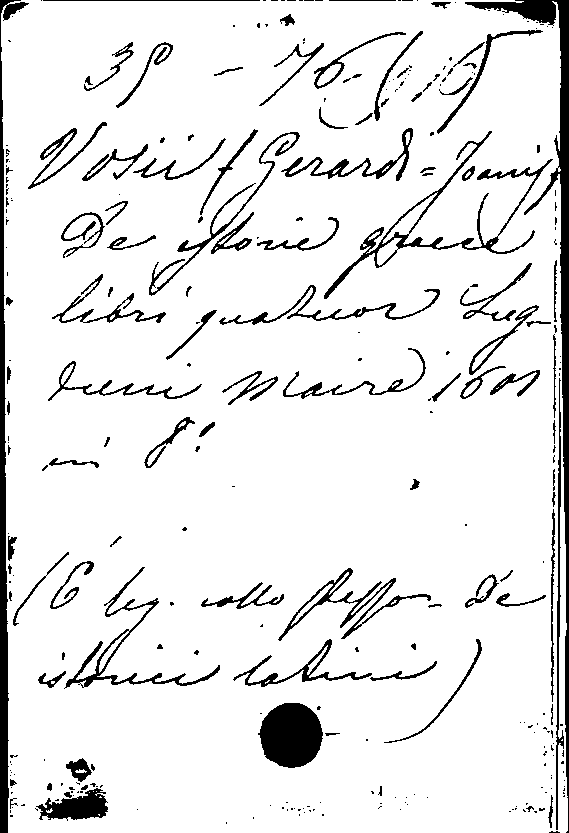 35 - 76 - (16)
Vosii (Gerardi = Joanis)
De istorie graece
libri quatuor Lug-
duni Maire 1601
in 8º
(È leg. collo stesso De
istorici latini)